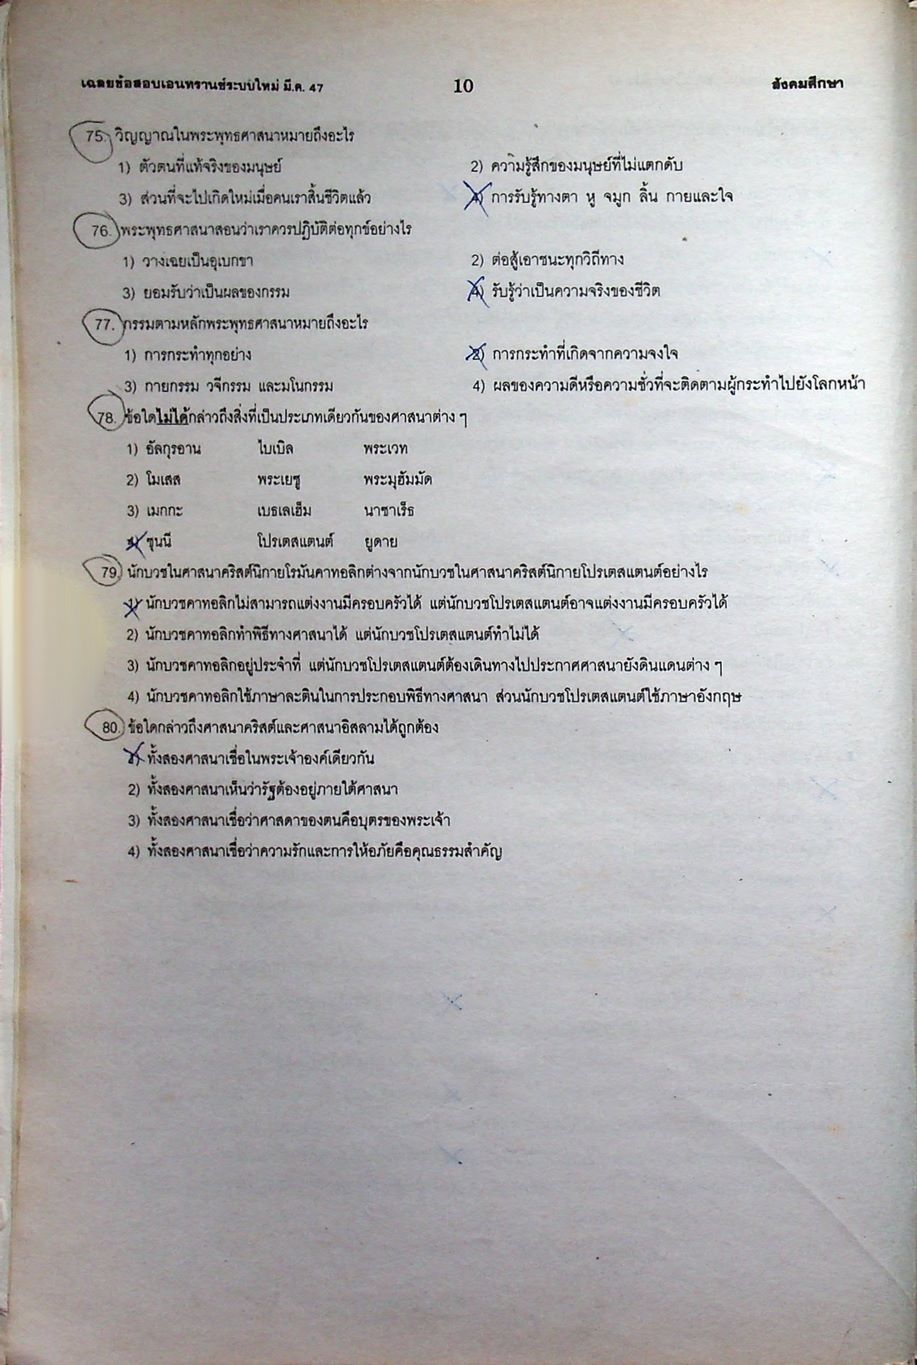 เฉลยข้อสอบเอนทรานซ์ระบบใหม่ มี.ค. 47 10 สังคมศึกษา
75. วิญญาณในพระพุทธศาสนาหมายถึงอะไร
1) ตัวตนที่แท้จริงของมนุษย์ 2) ความรู้สึกของมนุษย์ที่ไม่แตกดับ
3) ส่วนที่จะไปเกิดใหม่เมื่อคนเราสิ้นชีวิตแล้ว 4) การรับรู้ทางตา หู จมูก ลิ้น กายและใจ
76. พระพุทธศาสนาสอนว่าเราควรปฏิบัติต่อทุกข์อย่างไร
1) วางเฉยเป็นอุเบกขา 2) ต่อสู้เอาชนะทุกวิถีทาง
3) ยอมรับว่าเป็นผลของกรรม 4) รับรู้ว่าเป็นความจริงของชีวิต
77. กรรมตามหลักพระพุทธศาสนาหมายถึงอะไร
1) การกระทำทุกอย่าง 2) การกระทำที่เกิดจากความจงใจ
3) กายกรรม วจีกรรม และมโนกรรม 4) ผลของความดีหรือความชั่วที่จะติดตามผู้กระทำไปยังโลกหน้า
78. ข้อใดไม่ได้กล่าวถึงสิ่งที่เป็นประเภทเดียวกันของศาสนาต่าง ๆ
1) อัลกุรอาน ไบเบิล พระเวท
2) โมเสส พระเยซู พระมุฮัมมัด
3) เมกกะ เบธเลเฮ็ม นาซาเร็ธ
4) ซุนนี โปรเตสแตนต์ ยูดาย
79. นักบวชในศาสนาคริสต์นิกายโรมันคาทอลิกต่างจากนักบวชในศาสนาคริสต์นิกายโปรเตสแตนต์อย่างไร
1) นักบวชคาทอลิกไม่สามารถแต่งงานมีครอบครัวได้ แต่นักบวชโปรเตสแตนต์อาจแต่งงานมีครอบครัวได้
2) นักบวชคาทอลิกทำพิธีทางศาสนาได้ แต่นักบวชโปรเตสแตนต์ทำไม่ได้
3) นักบวชคาทอลิกอยู่ประจำที่ แต่นักบวชโปรเตสแตนต์ต้องเดินทางไปประกาศศาสนายังดินแดนต่าง ๆ
4) นักบวชคาทอลิกใช้ภาษาละตินในการประกอบพิธีทางศาสนา ส่วนนักบวชโปรเตสแตนต์ใช้ภาษาอังกฤษ
80. ข้อใดกล่าวถึงศาสนาคริสต์และศาสนาอิสลามได้ถูกต้อง
1) ทั้งสองศาสนาเชื่อในพระเจ้าองค์เดียวกัน
2) ทั้งสองศาสนาเห็นว่ารัฐต้องอยู่ภายใต้ศาสนา
3) ทั้งสองศาสนาเชื่อว่าศาสดาของตนคือบุตรของพระเจ้า
4) ทั้งสองศาสนาเชื่อว่าความรักและการให้อภัยคือคุณธรรมสำคัญ